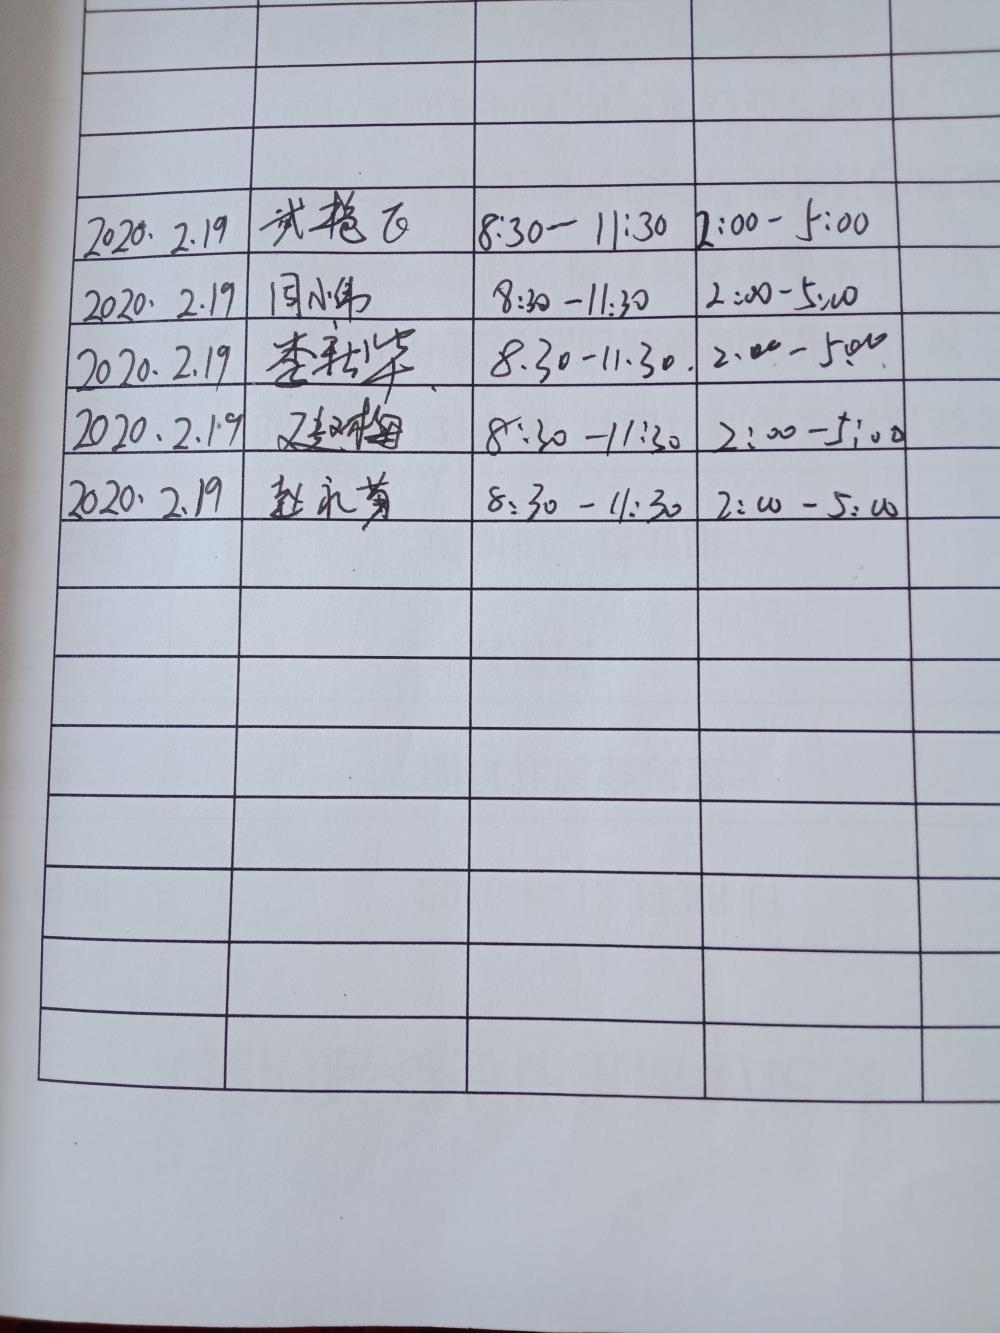 2020. 2.19 武艳飞 8:30－11:30 2:00－5:00
2020. 2.19 闫小伟 8:30－11:30 2:00－5:00
2020. 2.19 李彩华 8.30－11.30. 2:00－5:00
2020. 2.19 赵梅 8:30－11:30 2:00－5:00
2020. 2.19 赵永菊 8:30－11:30 2:00－5:00